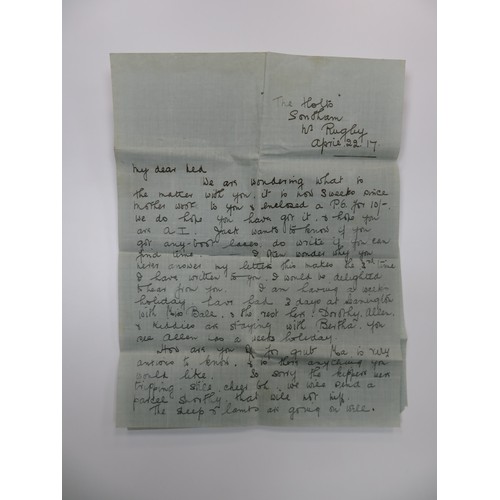 "The Hofts"
Nr Rugby
April 22.17
My dear
We are wondering what is
the matter with you, it is now 3 weeks since
mother wrote to you & enclosed a P.O. for 10/-
we do hope you have got it, & hope you
are A.I. Jack wants to know if you
got any boot laces, do write if you can
find time. I wonder why you
never answer my letters this makes the time
I have written to you, I would be delighted
to hear from you. I am having a weeks
holiday, have had 2 days at
with Mrs Bale, & the rest here. Dorothy, Allen,
& Kiddies are staying with Bertha, you
see Allen has a weeks holiday.
How are you for grub Ma is very
anxious to know, is there anything you
would like. So sorry the kippers were
still cheer oh, we will send a
parcel shortly, that will not
The sheep & lambs are going on well.